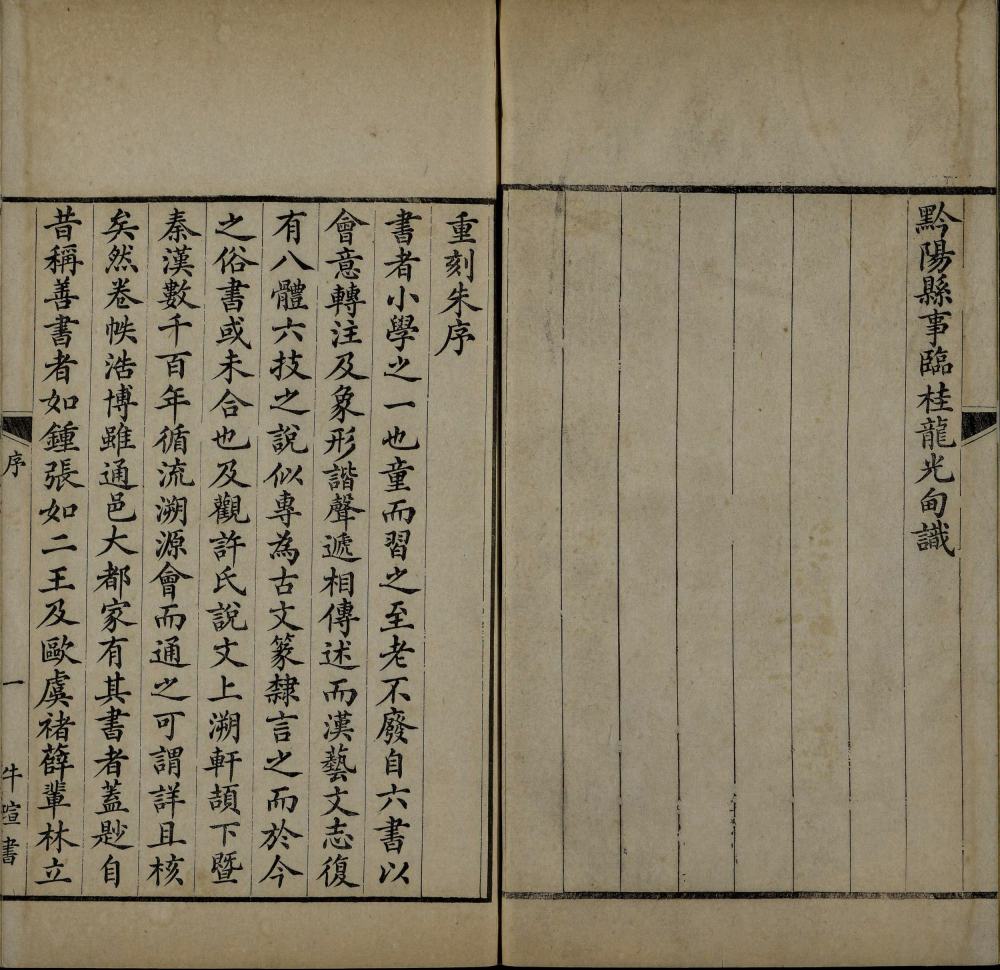 黔陽縣事臨桂龍光甸識
重刻朱序
書者小學之一也童而習之至老不廢自六書以
會意轉注及象形諧聲遞相傳述而漢藝文志復
有八體六技之說似專為古文篆隸言之而於今
之俗書或未合也及觀許氏說文上溯軒頡下暨
秦漢數千百年循流溯源會而通之可謂詳且核
矣然卷帙浩博雖通邑大都家有其書者蓋尟自
昔稱善書者如鍾張如二王及歐虞褚薛輩林立
序
一
喧書